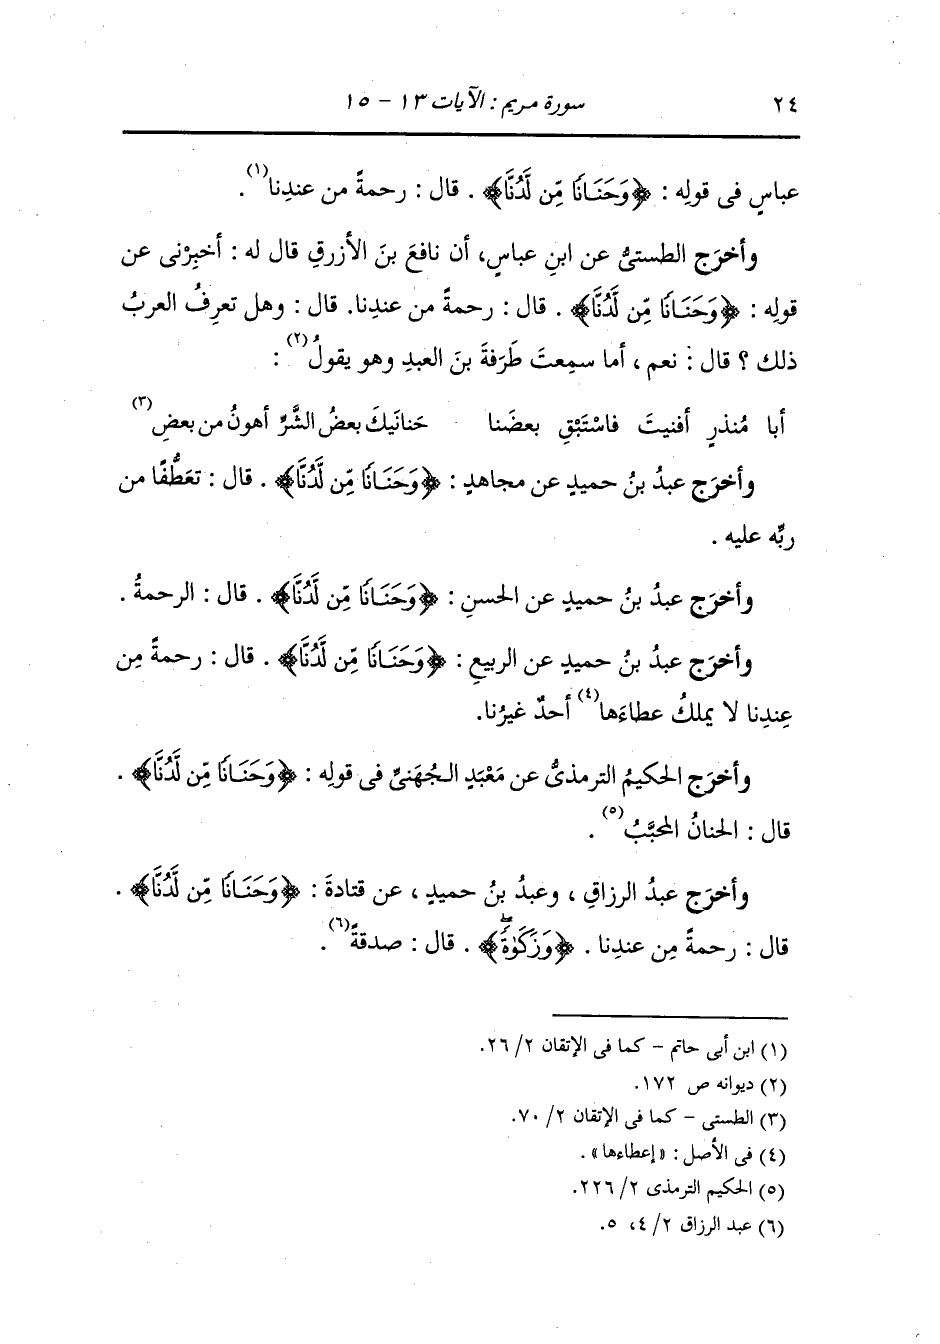 ٢٤ سورة مريم : الآيات ١٣ - ١٥
عباسٍ فى قولِه : ﴿وَحَنَانًا مِّن لَّدُنَّا﴾ . قال : رحمةً من عندِنا(١).
وأخرَج الطستىُّ عن ابنِ عباسٍ، أن نافعَ بنَ الأزرقِ قال له : أخبِرْنى عن
قولِه : ﴿وَحَنَانًا مِّن لَّدُنَّا﴾ . قال : رحمةً من عندِنا. قال : وهل تعرِفُ العربُ
ذلك ؟ قال : نعم ، أما سمِعتَ طَرَفةَ بنَ العبدِ وهو يقولُ(٢) :
أبا مُنذرٍ أفنيتَ فاسْتَبْقِ بعضَنا حَنانَيكَ بعضُ الشَّرِّ أهونُ من بعضِ(٣)
وأخرَج عبدُ بنُ حميدٍ عن مجاهدٍ : ﴿وَحَنَانًا مِّن لَّدُنَّا﴾ . قال : تعَطُّفًا من
ربِّه عليه .
وأخرَج عبدُ بنُ حميدٍ عن الحسنِ : ﴿وَحَنَانًا مِّن لَّدُنَّا﴾ . قال : الرحمةُ .
وأخرَج عبدُ بنُ حميدٍ عن الربيعِ : ﴿وَحَنَانًا مِّن لَّدُنَّا﴾ . قال : رحمةً مِن
عِندِنا لا يملكُ عطاءَها(٤) أحدٌ غيرُنا.
وأخرَج الحكيمُ الترمذىُّ عن مَعْبَدٍ الجُهَنىِّ فى قولِه : ﴿وَحَنَانًا مِّن لَّدُنَّا﴾ .
قال : الحنانُ المحبَّبُ(٥) .
وأخرَج عبدُ الرزاقِ ، وعبدُ بنُ حميدٍ ، عن قتادةَ : ﴿وَحَنَانًا مِّن لَّدُنَّا﴾ .
قال : رحمةً مِن عندِنا . ﴿وَزَكَوٰةًۖ﴾ . قال : صدقةً(٦).
(١) ابن أبى حاتم - كما فى الإتقان ٢/ ٢٦.
(٢) ديوانه ص ١٧٢.
(٣) الطستى - كما فى الإتقان ٢/ ٧٠.
(٤) فى الأصل : «إعطاءها» .
(٥) الحكيم الترمذى ٢/ ٢٢٦.
(٦) عبد الرزاق ٢/ ٤، ٥.